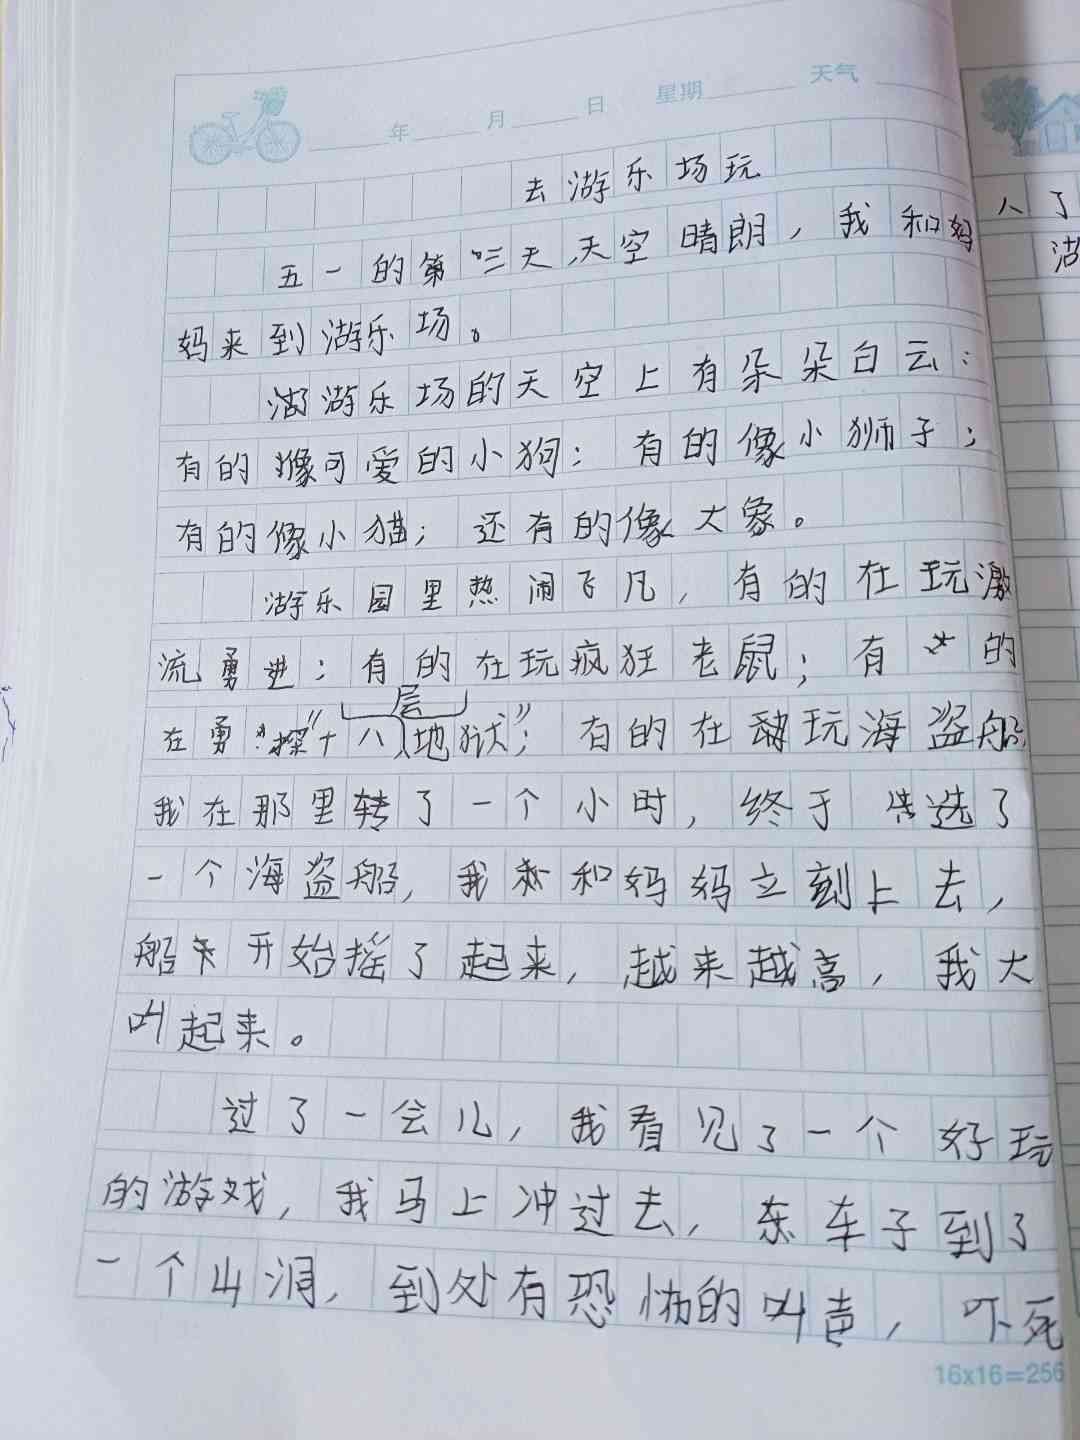 年 月 日 星期 天气
去游乐场玩
五一的第三天,天空晴朗,我和妈
妈来到游乐场。
游乐场的天空上有朵朵白云:
有的像可爱的小狗;有的像小狮子;
有的像小猫;还有的像大象。
游乐园里热闹飞凡,有的在玩激
流勇进;有的在玩疯狂老鼠;有的
在勇“探”十八层地狱”;有的在玩海盗船,
我在那里转了一个小时,终于选了
一个海盗船,我和妈妈立刻上去,
船开始摇了起来,越来越高,我大
叫起来。
过了一会儿,我看见了一个好玩
的游戏,我马上冲过去,车子到了
一个山洞,到处有恐怖的叫声,吓死
16x16=256
人了